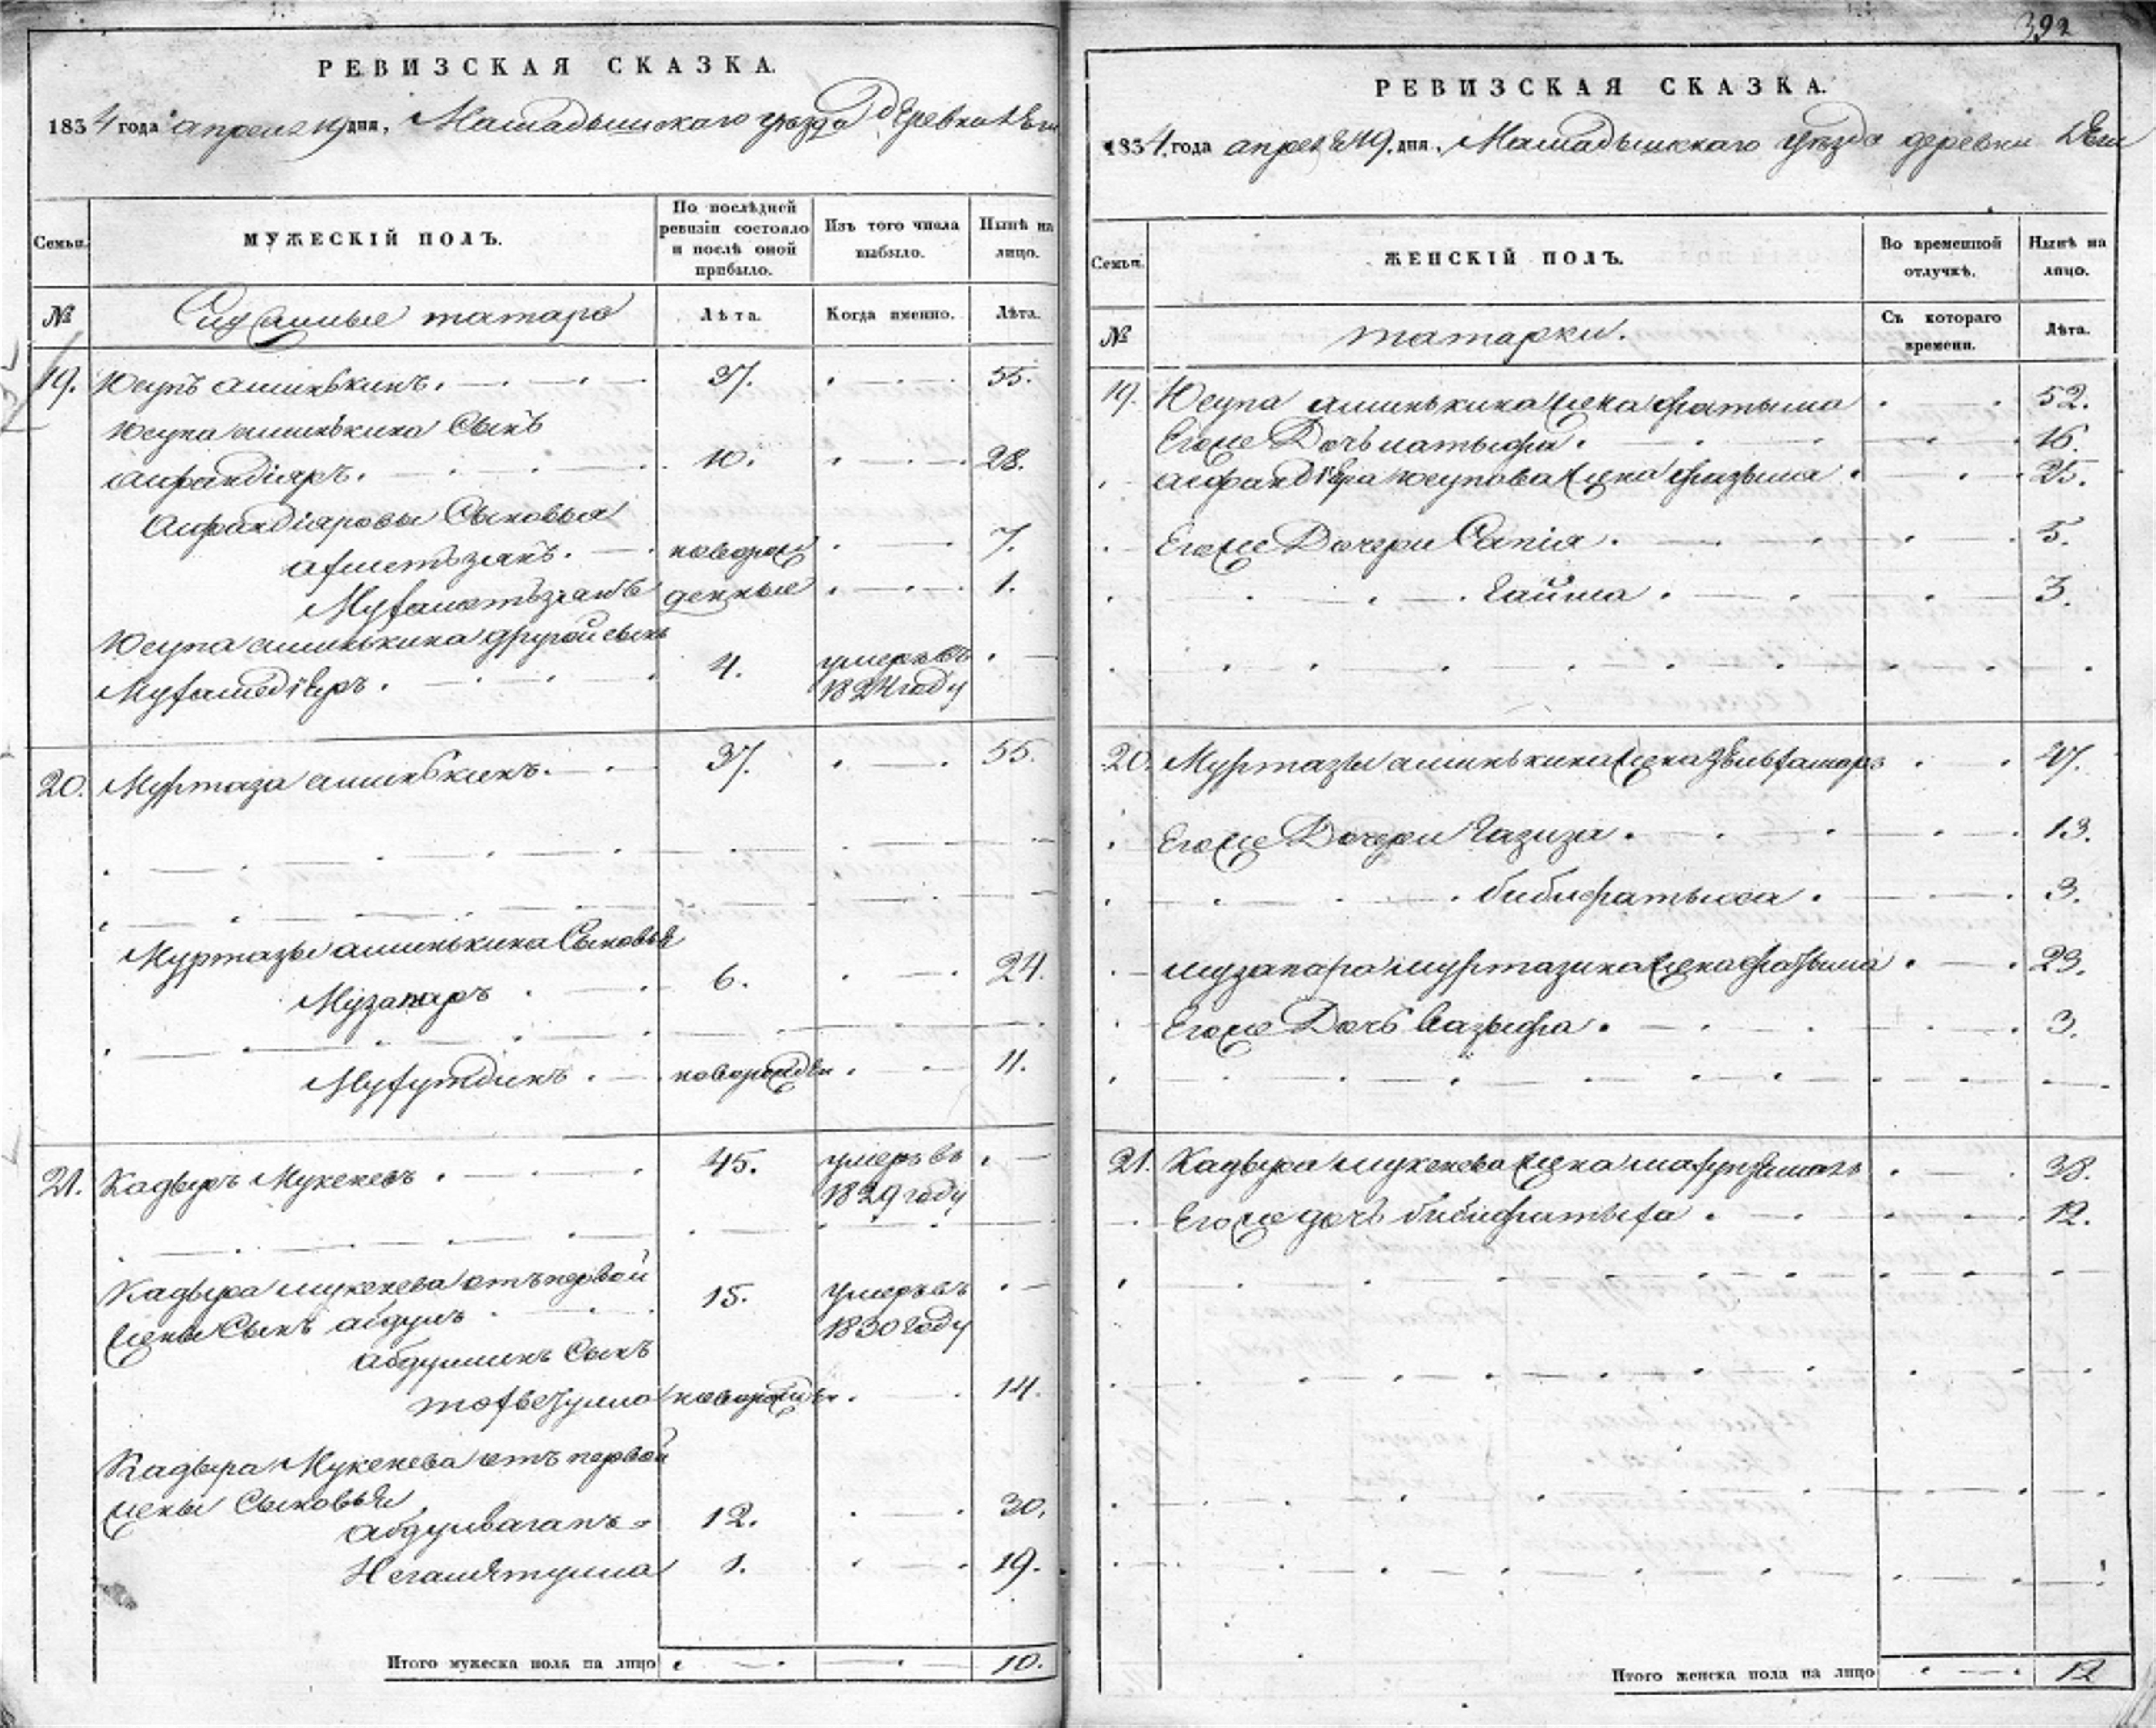 РЕВИЗСКАЯ СКАЗКА.
1834 года апреля 19 дня, Мамадышскаго уезда деревни
Семьи. МУЖЕСКІЙ ПОЛЪ. По послѣдней ревизіи состояло и послѣ оной прибыло. Изъ того числа выбыло. Нынѣ на лицо.
№ татара Лѣта. Когда именно. Лѣта.
19. Юсупъ аминькинъ. 37. 55.
Юсупа аминькина Сынъ
асфандіяръ. 10. 28.
Асфандіяровы Сыновья
ахметьзянъ. новорож 7.
Мухаметьзянъ денные 1.
Юсупа аминькина другой сынъ
Мухамедіяръ. 4. умеръ въ 1824 году
20. Муртаза аминькинъ. 37. 55.
Муртазы аминькина Сыновья
Музапаръ 6. 24.
Мухутдинъ. новорожден. 11.
21. Кадыръ Мукеневъ. 45. умеръ въ 1829 году
Кадыра мукенева отъ первой
жены Сынъ абдулъ 15. умеръ въ 1830 году
Сынъ
новорожден. 14.
Кадыра Мукенева отъ первой
жены Сыновья
абдулвагапъ 12. 30.
Негаметулла 1. 19.
Итого мужеска пола на лицо 10.
392
РЕВИЗСКАЯ СКАЗКА.
1834 года апреля 19 дня, Мамадышскаго уезда деревни
Семьи. ЖЕНСКІЙ ПОЛЪ. Во временной отлучкѣ. Нынѣ на лицо.
№ татарки. Съ котораго времени. Лѣта.
19. Юсупа аминькина жена фатыма 52.
Его же Дочь латыфа. 16.
асфандіяра юсупова жена фазыма 25.
Его же Дочери Сапія. 5.
Гайша. 3.
20. Муртазы аминькина жена 47.
Его же Дочери Газиза. 13.
бибифатыма. 3.
музапара муртазина жена 23.
Его же Дочь вазыфа. 3.
21. Кадыра мукенева жена 38.
Его же дочь 12.
Итого женска пола на лицо 12